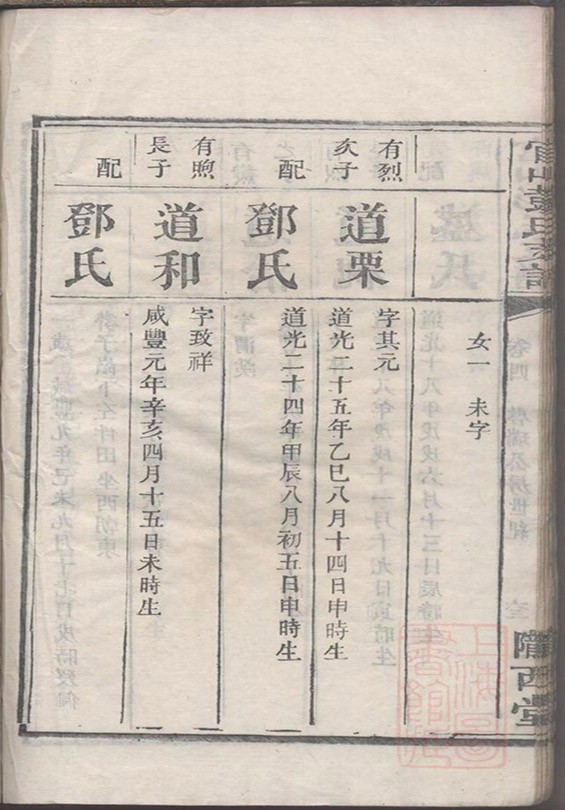 女一未字
有烈
次子
道栗
字其元
道光二十五年乙巳八月十四日申時生
配
鄧氏
道光二十四年甲辰八月初五日申時生
有煦
長子
道和
字致祥
咸豐元年辛亥四月十五日未時生
配
鄧氏